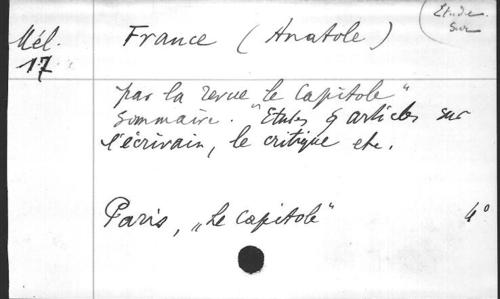 (Etude
sur
Mél.
17
France (Anatole)
par la revue "le Capitole"
Sommaire. "Etudes & articles sur
l'écrivain, le critique etc.
Paris, "Le Capitole"
4°